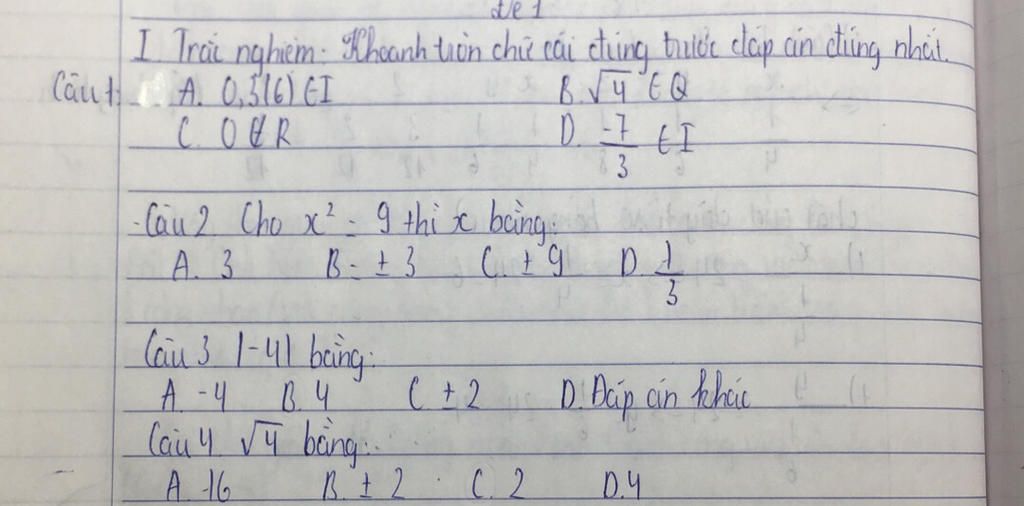 Đề 1
I Trắc nghiệm: Khoanh tròn chữ cái đứng trước đáp án đúng nhất.
Câu 1: A. 0,3(6) ∈ I B. √4 ∈ Q
C. 0 ∉ R D. -7/3 ∈ I
Câu 2 Cho x² = 9 thì x bằng:
A. 3 B = ± 3 C. ± 9 D 1/3
Câu 3 |-4| bằng:
A. -4 B. 4 C ± 2 D. Đáp án khác
Câu 4 √4 bằng:
A. -16 B. ± 2 C. 2 D. 4